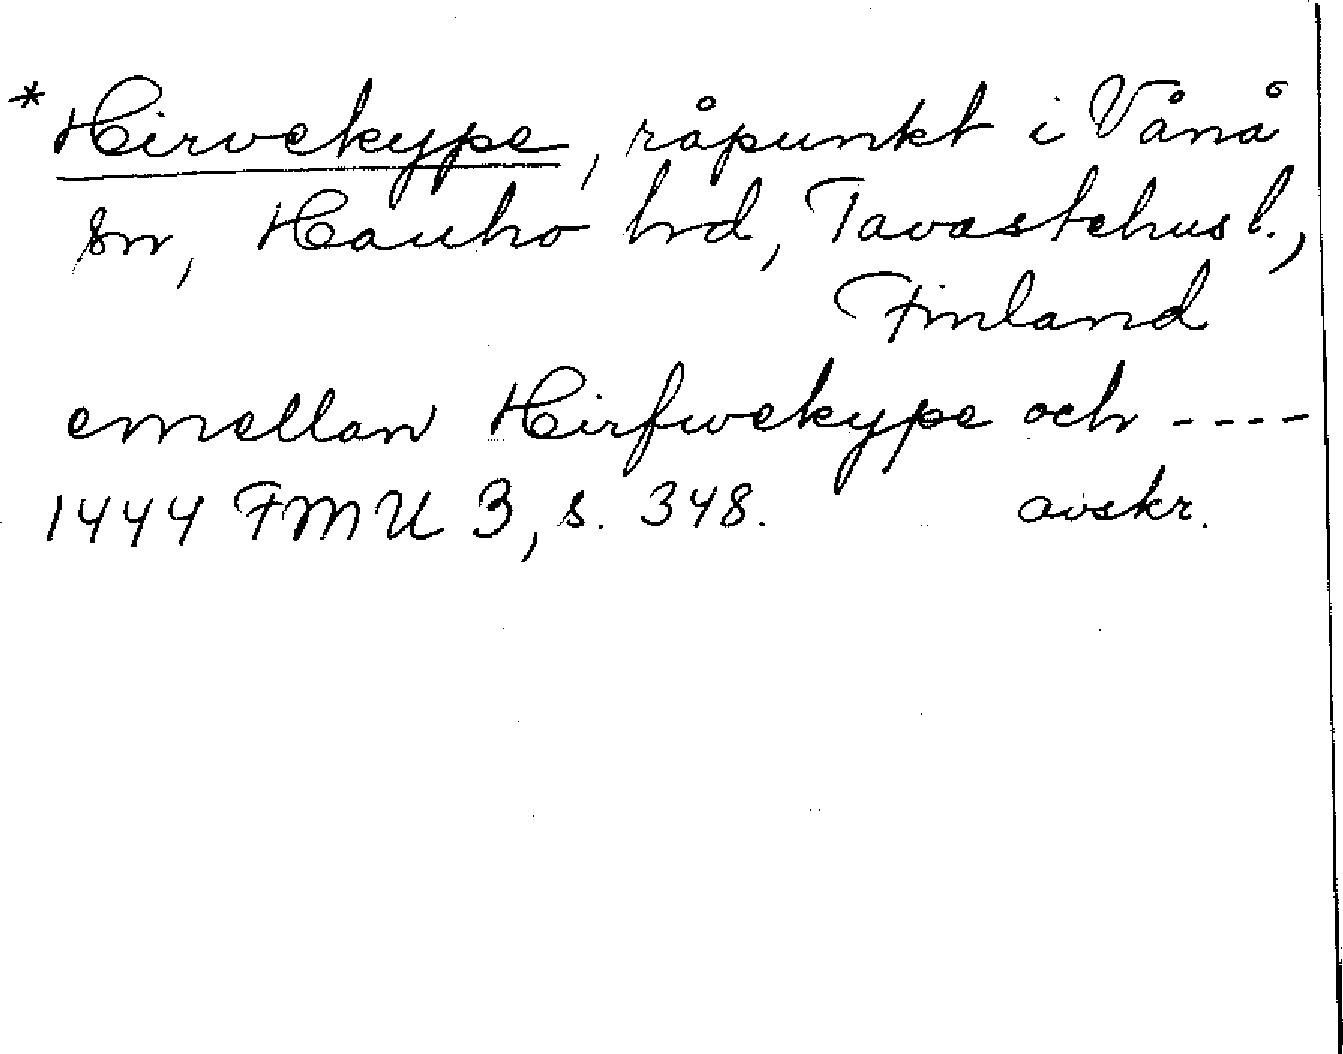 * Hirvekype, råpunkt i Vånå
sn, Hauho hd, Tavastehus l.,
Finland
emellan Hirfwekype och ----
1444 FMU 3, s. 348. avskr.